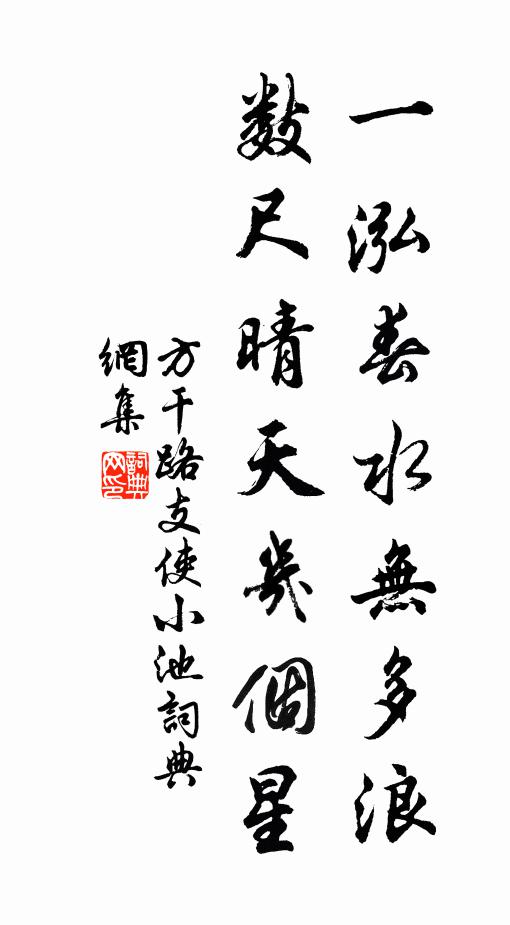 一泓春水無多浪
數尺晴天幾個星
方干路支使小池詞典
網集
詞典網印